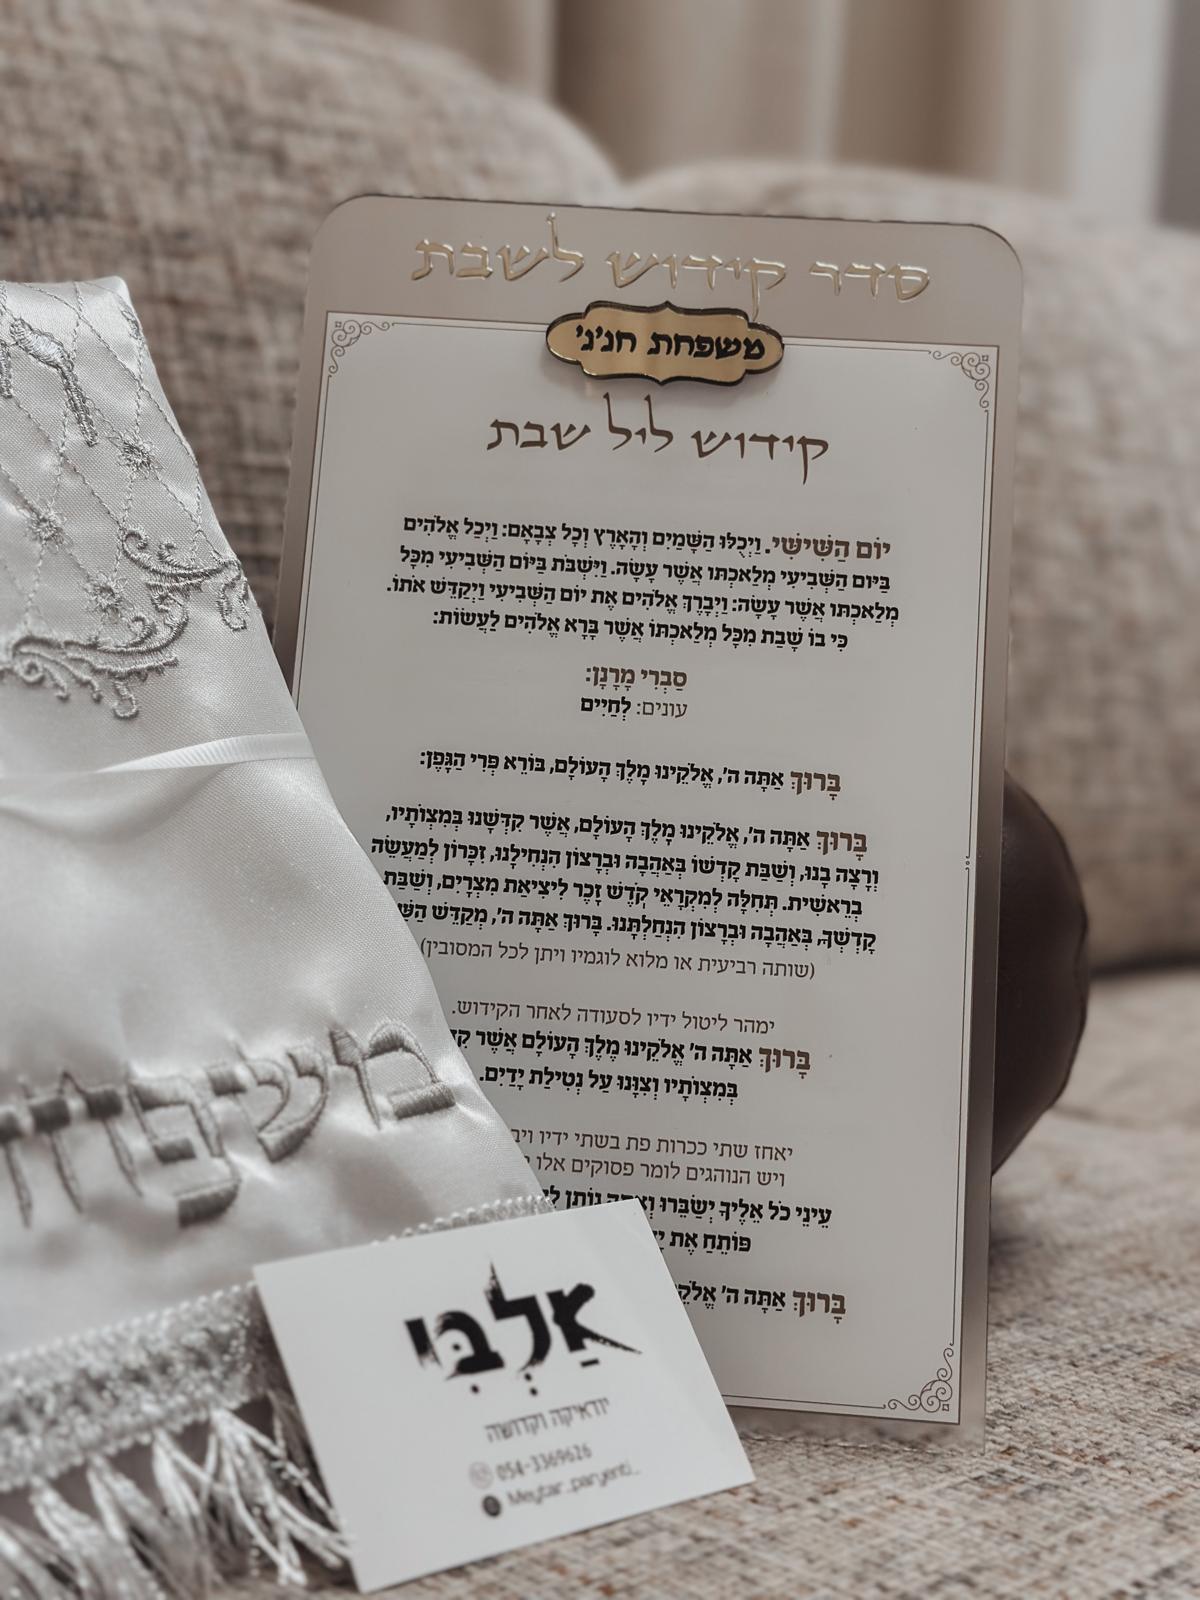 סדר קידוש לשבת
משפחת חג'ג'
קידוש ליל שבת
יוֹם הַשִּׁישִׁי. וַיְכֻלּוּ הַשָּׁמַיִם וְהָאָרֶץ וְכָל צְבָאָם: וַיְכַל אֱלֹהִים
בַּיּוֹם הַשְּׁבִיעִי מְלַאכְתּוֹ אֲשֶׁר עָשָׂה. וַיִּשְׁבֹּת בַּיּוֹם הַשְּׁבִיעִי מִכָּל
מְלַאכְתּוֹ אֲשֶׁר עָשָׂה: וַיְבָרֶךְ אֱלֹהִים אֶת יוֹם הַשְּׁבִיעִי וַיְקַדֵּשׁ אֹתוֹ.
כִּי בוֹ שָׁבַת מִכָּל מְלַאכְתּוֹ אֲשֶׁר בָּרָא אֱלֹהִים לַעֲשׂוֹת:
סַבְרִי מָרָנָן:
עונים: לְחַיִּים
בָּרוּךְ אַתָּה ה', אֱלֹקֵינוּ מֶלֶךְ הָעוֹלָם, בּוֹרֵא פְּרִי הַגָּפֶן:
בָּרוּךְ אַתָּה ה', אֱלֹקֵינוּ מֶלֶךְ הָעוֹלָם, אֲשֶׁר קִדְּשָׁנוּ בְּמִצְוֹתָיו,
וְרָצָה בָנוּ, וְשַׁבַּת קָדְשׁוֹ בְּאַהֲבָה וּבְרָצוֹן הִנְחִילָנוּ, זִכָּרוֹן לְמַעֲשֵׂה
בְרֵאשִׁית. תְּחִלָּה לְמִקְרָאֵי קֹדֶשׁ זֵכֶר לִיצִיאַת מִצְרָיִם, וְשַׁבַּת
קָדְשְׁךָ, בְּאַהֲבָה וּבְרָצוֹן הִנְחַלְתָּנוּ. בָּרוּךְ אַתָּה ה', מְקַדֵּשׁ
(שותה רביעית או מלוא לוגמיו ויתן לכל המסובין)
ימהר ליטול ידיו לסעודה לאחר הקידוש.
בָּרוּךְ אַתָּה ה' אֱלֹקֵינוּ מֶלֶךְ הָעוֹלָם אֲשֶׁר
בְּמִצְוֹתָיו וְצִוָּנוּ עַל נְטִילַת יָדַיִם.
יאחז שתי ככרות פת בשתי ידיו
ויש הנוהגים לומר פסוקים אלו
עֵינֵי כֹל אֵלֶיךָ יְשַׂבֵּרוּ וְאַתָּה נוֹתֵן
פּוֹתֵחַ אֶת
בָּרוּךְ אַתָּה ה'
משפח
אַלְבִּי
יודאיקה וקדושה
054-3369626
Meytar_paryenti_